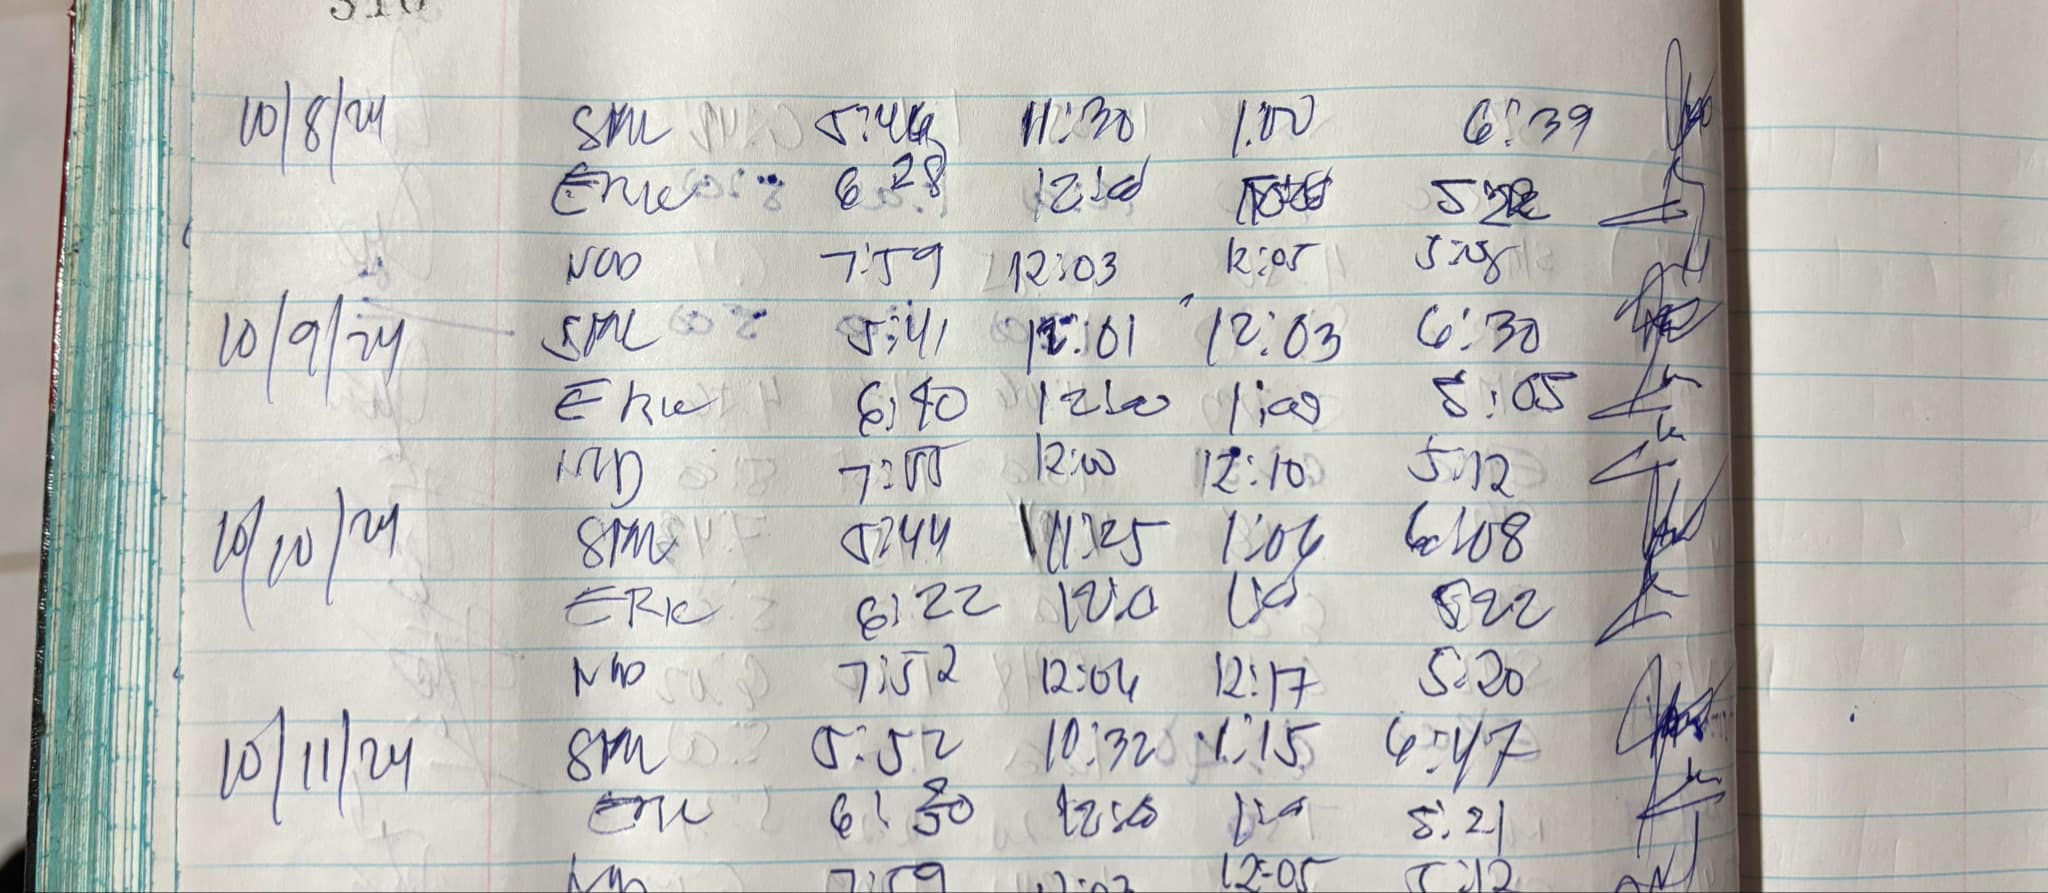 310
10/8/24 SML 5:46 11:30 1:00 6:39
Eric 6:28 12:00
NOD 7:59 12:03 12:05
10/9/24 SML 5:41 12:01 12:03 6:30
Eric 6:40 12:00 1:00 5:05
7:55 12:00 12:10 5:12
10/10/24 SML 5:44 11:25 1:06 6:08
ERic 6:22 12:0 1:0 5:22
NOD 7:52 12:06 12:17 5:20
10/11/24 SML 5:52 10:32 1:15 6:47
Eric 12:00 1:0 5:21
7:59 12:03 12:05 5:12